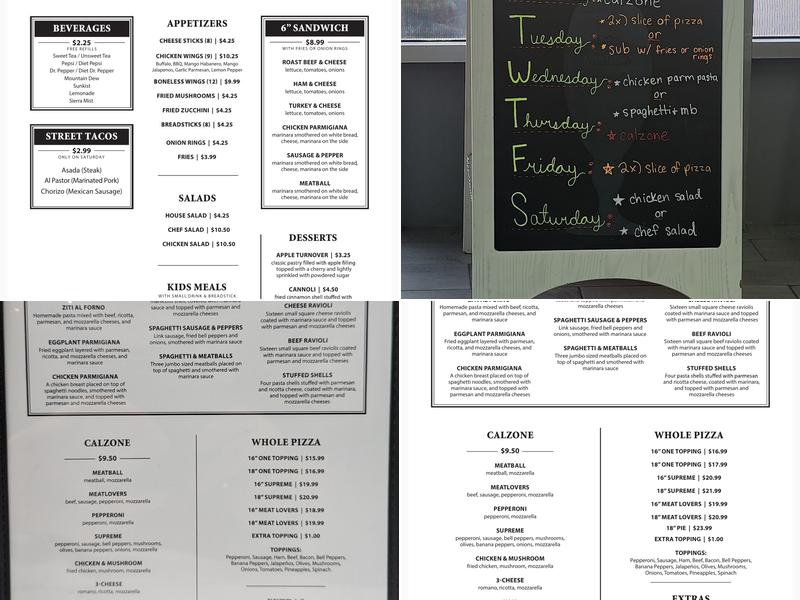 BEVERAGES
$2.25
FREE REFILLS
Sweet Tea / Unsweet Tea
Pepsi / Diet Pepsi
Dr. Pepper / Diet Dr. Pepper
Mountain Dew
Sunkist
Lemonade
Sierra Mist
STREET TACOS
$2.99
ONLY ON SATURDAY
Asada (Steak)
Al Pastor (Marinated Pork)
Chorizo (Mexican Sausage)
APPETIZERS
CHEESE STICKS (8) | $4.25
CHICKEN WINGS (9) | $10.25
Buffalo, BBQ, Mango Habanero, Mango
Jalapenos, Garlic Parmesan, Lemon Pepper
BONELESS WINGS (12) | $9.99
FRIED MUSHROOMS | $4.25
FRIED ZUCCHINI | $4.25
BREADSTICKS (8) | $4.25
ONION RINGS | $4.25
FRIES | $3.99
SALADS
HOUSE SALAD | $4.25
CHEF SALAD | $10.50
CHICKEN SALAD | $10.50
KIDS MEALS
WITH SMALL DRINK & BREADSTICK
6" SANDWICH
$8.99
WITH FRIES OR ONION RINGS
ROAST BEEF & CHEESE
lettuce, tomatoes, onions
HAM & CHEESE
lettuce, tomatoes, onions
TURKEY & CHEESE
lettuce, tomatoes, onions
CHICKEN PARMIGIANA
marinara smothered on white bread,
cheese, marinara on the side
SAUSAGE & PEPPER
marinara smothered on white bread,
cheese, marinara on the side
MEATBALL
marinara smothered on white bread,
cheese, marinara on the side
DESSERTS
APPLE TURNOVER | $3.25
classic pastry filled with apple filling
topped with a cherry and lightly
sprinkled with powdered sugar
CANNOLI | $4.50
fried cinnamon shell stuffed with
calzone
Tuesday: 2x) slice of pizza
or
sub w/ fries or onion
rings
Wednesday: chicken parm pasta
or
Thursday: spaghetti + mb
calzone
Friday: 2x) slice of pizza
Saturday: chicken salad
or
chef salad
ZITI AL FORNO
Homemade pasta mixed with beef, ricotta,
parmesan, and mozzarella cheeses, and
marinara sauce
EGGPLANT PARMIGIANA
Fried eggplant layered with parmesan,
ricotta, and mozzarella cheeses, and
marinara sauce
CHICKEN PARMIGIANA
A chicken breast placed on top of
spaghetti noodles, smothered with
marinara sauce, and topped with
parmesan and mozzarella cheeses
sauce and topped with parmesan and
mozzarella cheeses
SPAGHETTI SAUSAGE & PEPPERS
Link sausage, fried bell peppers and
onions, smothered in marinara sauce
SPAGHETTI & MEATBALLS
Three jumbo sized meatballs placed on
top of spaghetti and smothered in
marinara sauce
CHEESE RAVIOLI
Sixteen small square cheese raviolis
coated with marinara sauce and topped
with parmesan and mozzarella cheeses
BEEF RAVIOLI
Sixteen small square beef raviolis coated
with marinara sauce and topped with
parmesan and mozzarella cheeses
STUFFED SHELLS
Four pasta shells stuffed with parmesan
and ricotta cheese, coated with marinara,
and topped with parmesan and
mozzarella cheeses
CALZONE
$9.50
MEATBALL
meatball, mozzarella
MEATLOVERS
beef, sausage, pepperoni, mozzarella
PEPPERONI
pepperoni, mozzarella
SUPREME
pepperoni, sausage, bell peppers, mushrooms,
olives, banana peppers, onions, mozzarella
CHICKEN & MUSHROOM
fried chicken, mushroom, mozzarella
3-CHEESE
romano, ricotta, mozzarella
WHOLE PIZZA
16" ONE TOPPING | $15.99
18" ONE TOPPING | $16.99
16" SUPREME | $19.99
18" SUPREME | $20.99
16" MEAT LOVERS | $18.99
18" MEAT LOVERS | $19.99
EXTRA TOPPING | $1.00
TOPPINGS:
Pepperoni, Sausage, Ham, Beef, Bacon, Bell Peppers,
Banana Peppers, Jalapeños, Olives, Mushrooms,
Onions, Tomatoes, Pineapples, Spinach
Homemade pasta mixed with beef, ricotta,
parmesan, and mozzarella cheeses, and
marinara sauce
EGGPLANT PARMIGIANA
Fried eggplant layered with parmesan,
ricotta, and mozzarella cheeses, and
marinara sauce
CHICKEN PARMIGIANA
A chicken breast placed on top of
spaghetti noodles, smothered with
marinara sauce, and topped with
parmesan and mozzarella cheeses
mozzarella cheeses
SPAGHETTI SAUSAGE & PEPPERS
Link sausage, fried bell peppers and
onions, smothered in marinara sauce
SPAGHETTI & MEATBALLS
Three jumbo sized meatballs placed on
top of spaghetti and smothered in
marinara sauce
Sixteen small square cheese raviolis
coated with marinara sauce and topped
with parmesan and mozzarella cheeses
BEEF RAVIOLI
Sixteen small square beef raviolis coated
with marinara sauce and topped with
parmesan and mozzarella cheeses
STUFFED SHELLS
Four pasta shells stuffed with parmesan
and ricotta cheese, coated with marinara,
and topped with parmesan and
mozzarella cheeses
CALZONE
$9.50
MEATBALL
meatball, mozzarella
MEATLOVERS
beef, sausage, pepperoni, mozzarella
PEPPERONI
pepperoni, mozzarella
SUPREME
pepperoni, sausage, bell peppers, mushrooms,
olives, banana peppers, onions, mozzarella
CHICKEN & MUSHROOM
fried chicken, mushroom, mozzarella
3-CHEESE
romano, ricotta, mozzarella
WHOLE PIZZA
16" ONE TOPPING | $16.99
18" ONE TOPPING | $17.99
16" SUPREME | $20.99
18" SUPREME | $21.99
16" MEAT LOVERS | $19.99
18" MEAT LOVERS | $20.99
18" PIE | $23.99
EXTRA TOPPING | $1.00
TOPPINGS:
Pepperoni, Sausage, Ham, Beef, Bacon, Bell Peppers,
Banana Peppers, Jalapeños, Olives, Mushrooms,
Onions, Tomatoes, Pineapples, Spinach
EXTRAS